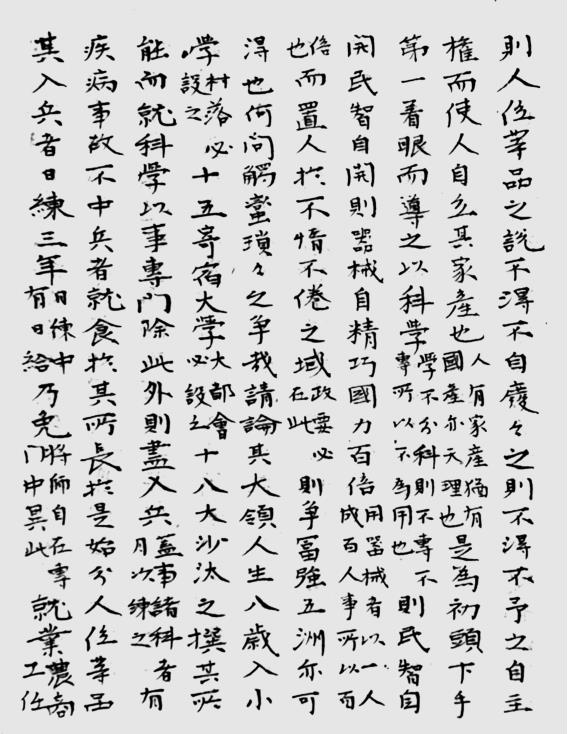 則人位等品之說不得不自廢々之則不得不予之自主
權而使人自立其家產也人有家產猶有國產亦天理也是為初頭下手
第一着眼而導之以科學學不分科則不專不專所以不為用也則民智自
開民智自開則器械自精巧國力百倍用器械者以一人成百人事所以而
倍也而置人於不惰不倦之域政要必在此則爭富強五洲亦可
得也何問觸蠻瑣々之爭哉請論其大領人生八歲入小
學村落必設之十五寄宿大學大都會必設之十八大沙汰之撰其所
能而就科學以事專門除此外則盡入兵蓋事諸科者有月次練之
疾病事故不中兵者就食於其所長於是始分人位等品
其入兵者日練三年日練中有日給乃免將師自在專門中異此就業農商工仕